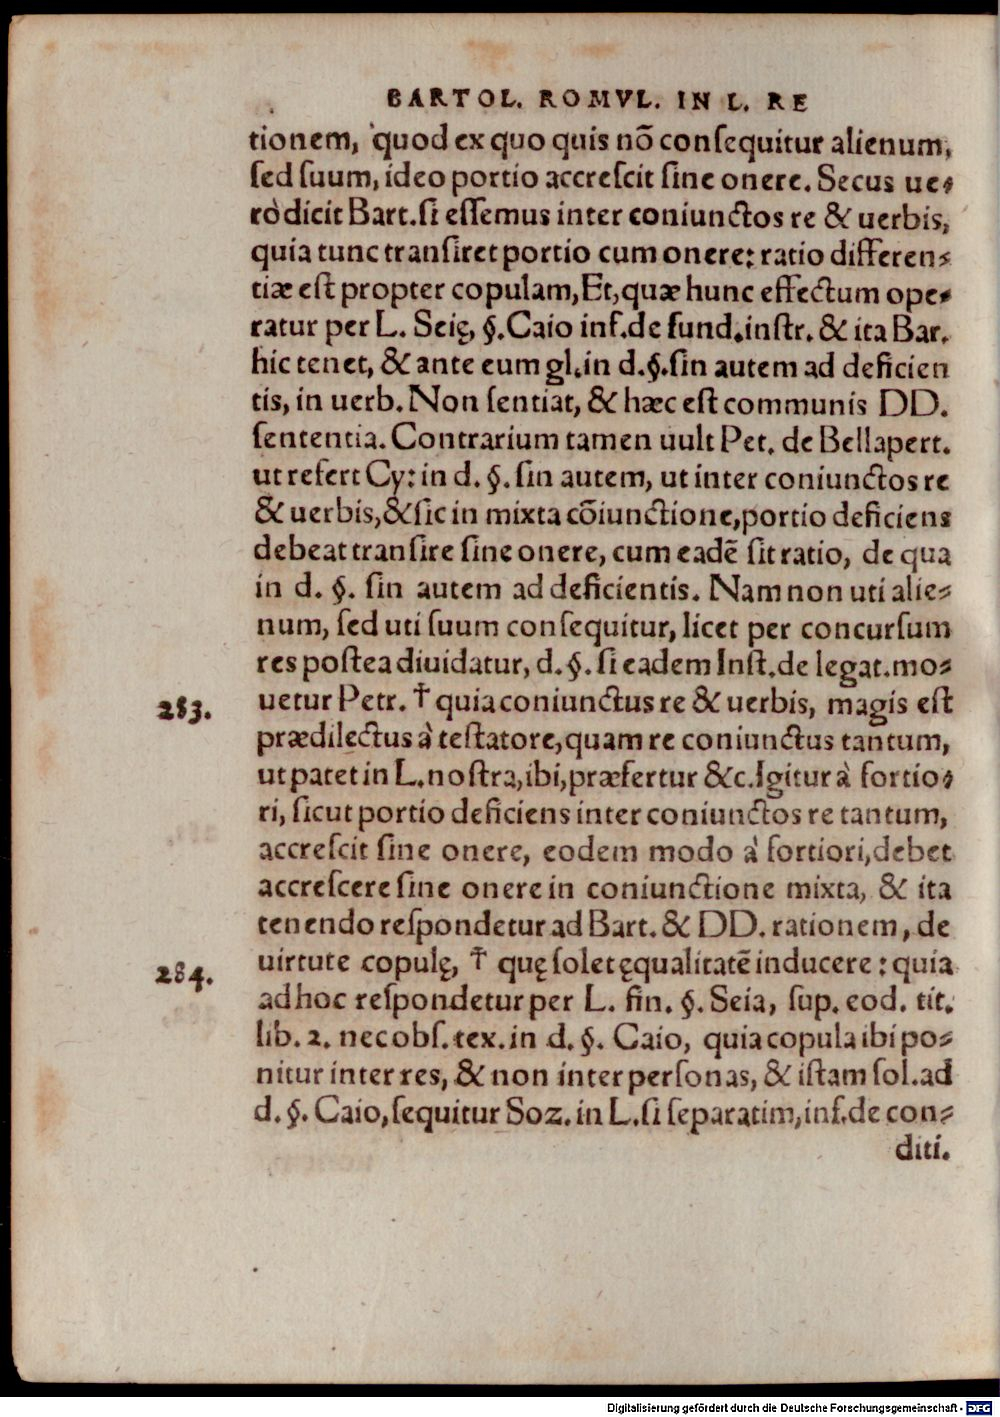 BARTOL. ROMVL. IN L. RE
tionem, quod ex quo quis nõ conſequitur alienum,
ſed ſuum, ideo portio accreſcit ſine onere. Secus ue⸗
rò dicit Bart. ſi eſſemus inter coniunctos re & uerbis,
quia tunc tranſiret portio cum onere: ratio differen⸗
tiæ eſt propter copulam, Et, quæ hunc effectum ope⸗
ratur per L. Seię, §. Caio inf. de fund. inſtr. & ita Bar.
hic tenet, & ante eum gl. in d. §. ſin autem ad deficien
tis, in uerb. Non ſentiat, & hæc eſt communis DD.
ſententia. Contrarium tamen uult Pet. de Bellapert.
ut refert Cy: in d. §. ſin autem, ut inter coniunctos re
& uerbis, & ſic in mixta cõiunctione, portio deficiens
debeat tranſire ſine onere, cum eadẽ ſit ratio, de qua
in d. §. ſin autem ad deficientis. Nam non uti alie⸗
num, ſed uti ſuum conſequitur, licet per concurſum
res poſtea diuidatur, d. §. ſi eadem Inſt. de legat. mo⸗
283. uetur Petr. † quia coniunctus re & uerbis, magis eſt
prædilectus à teſtatore, quam re coniunctus tantum,
ut patet in L. noſtra, ibi, præfertur &c. Igitur à fortio⸗
ri, ſicut portio deficiens inter coniunctos re tantum,
accreſcit ſine onere, eodem modo à fortiori, debet
accreſcere ſine onere in coniunctione mixta, & ita
tenendo reſpondetur ad Bart. & DD. rationem, de
284. uirtute copulę, † quę ſolet ęqualitatẽ inducere: quia
ad hoc reſpondetur per L. fin. §. Seia, ſup. eod. tit.
lib. 2. nec obſ. tex. in d. §. Caio, quia copula ibi po⸗
nitur inter res, & non inter perſonas, & iſtam ſol. ad
d. §. Caio, ſequitur Soz. in L. ſi ſeparatim, inf. de con⸗
diti.
Digitalisierung gefördert durch die Deutsche Forschungsgemeinschaft - DFG